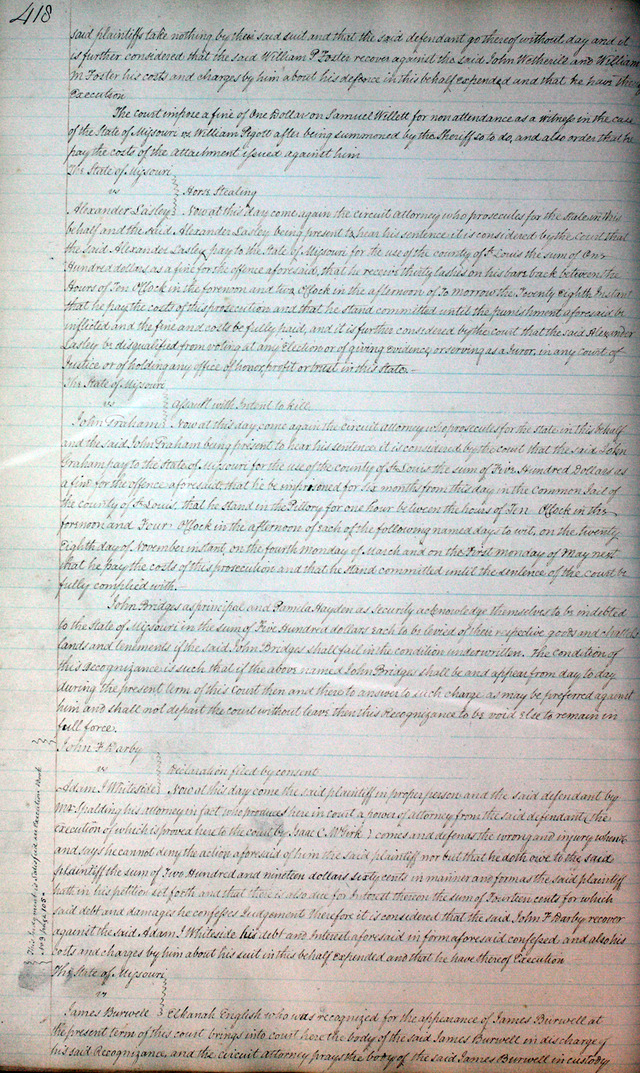 418
said plaintiffs take nothing by their said suit and that the said defendant go thereof without day and it
is further considered that the said William P Foster recover against the said John Wetherill and William
M Foster his costs and charges by him about his defence in this behalf expended and that he have thereof
Execution
The court impose a fine of One Dollar on Samuel Willett for non attendance as a witness in the case
of the State of Missouri vs William Pigott after being summoned by the Sheriff so to do, and also order that he
pay the costs of the attachment issued against him
The State of Missouri
vs Horse Stealing
Alexander Lasley Now at this day come again the circuit attorney who prosecutes for the state in this
behalf and the said Alexander Lasley being present to hear his sentence it is considered by the court that
the said Alexander Lasley pay to the State of Missouri for the use of the county of St Louis the sum of One
Hundred dollars as a fine for the offence aforesaid, that he receive thirty lashes on his bare back between the
Hours of Ten OClock in the forenoon and two OClock in the afternoon of To morrow the Twenty Eighth Instant
that he pay the costs of this prosecution and that he stand committed until the punishment aforesaid be
inflicted and the fine and costs be fully paid, and it is further considered by the court that the said Alexander
Lasley be disqualified from voting at any Election or of giving evidence or serving as a Juror, in any court of
Justice or of holding any office of honor, profit or trust in this State.-
The State of Missouri
vs Assault with Intent to kill
John Graham Now at this day come again the circuit attorney who prosecutes for the state in this behalf
and the said John Graham being present to hear his sentence it is considered by the court that the said John
Graham pay to the State of Missouri for the use of the county of St Louis the sum of Five Hundred Dollars as
a fine for the offence aforesaid, that he be imprisoned for six months from this day in the Common Jail of
the county of St Louis, that he stand in the Pillory for one hour between the hours of Ten OClock in the
forenoon and Four OClock in the afternoon of each of the following named days to wit, on the twenty
Eighth day of November instant, on the fourth monday of March and on the First monday of May next
that he pay the costs of this prosecution and that he stand committed until the sentence of the court be
fully complied with.
John Bridges as principal and Pamela Hayden as Security acknowledge themselves to be indebted
to the State of Missouri in the sum of Five Hundred dollars Each to be levied of their respective goods and chattels
lands and tenements if the said John Bridges shall fail in the condition underwritten. The condition of
this Recognizance is such that if the above named John Bridges shall be and appear from day to day
during the present term of this Court then and there to answer to such charge as may be preferred against
him and shall not depart the court without leave then this Recognizance to be void Else to remain in
full force.
John F Darby
vs Declaration filed by consent
Adam I Whiteside Now at this day come the said plaintiff in proper person and the said defendant by
Mr Spalding his attorney in fact who produces here in court a power of attorney from the said defendant (the
execution of which is proved here to the court by Isaac C McGirk) comes and defends the wrong and injury when &c
and says he cannot deny the action aforesaid of him the said plaintiff nor but that he doth owe to the said
plaintiff the sum of Two Hundred and nineteen dollars sixty cents in manner and form as the said plaintiff
hath in his petition set forth and that there is also due for Interest thereon the sum of fourteen cents for which
said debt and damages he confesses Judgement therefore it is considered that the said John F Darby recover
against the said Adam I Whiteside his debt and Interest aforesaid in form aforesaid confessed and also his
costs and charges by him about his suit in this behalf Expended and that he have thereof Execution
This Judgement is Satisfied see Execution Book
No 3 page 105.
The State of Missouri
vs
James Burwell Elkanah English who was recognized for the appearance of James Burwell at
the present term of this court brings into court here the body of the said James Burwell in discharge of
his said Recognizance, and the circuit attorney prays the body of the said James Burwell in custody